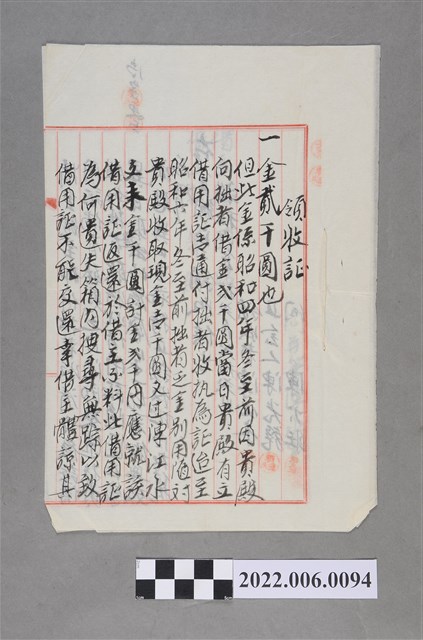 領收証
一金貳千圓也
但此金係昭和四年冬至前因貴殿
向拙者借金貳千圓當日貴殿有立
借用証壱通付拙者收执為証迨至
昭和六年冬至前拙者乏金别用随对
貴殿收取現金壱千圓又过陳江水
支来金千圓計金貳千円應就該
借用証返還於借主不料此借用証
為何遺失箱内搜尋無踪以致
借用証不能交還幸借主體諒其
2022.006.0094